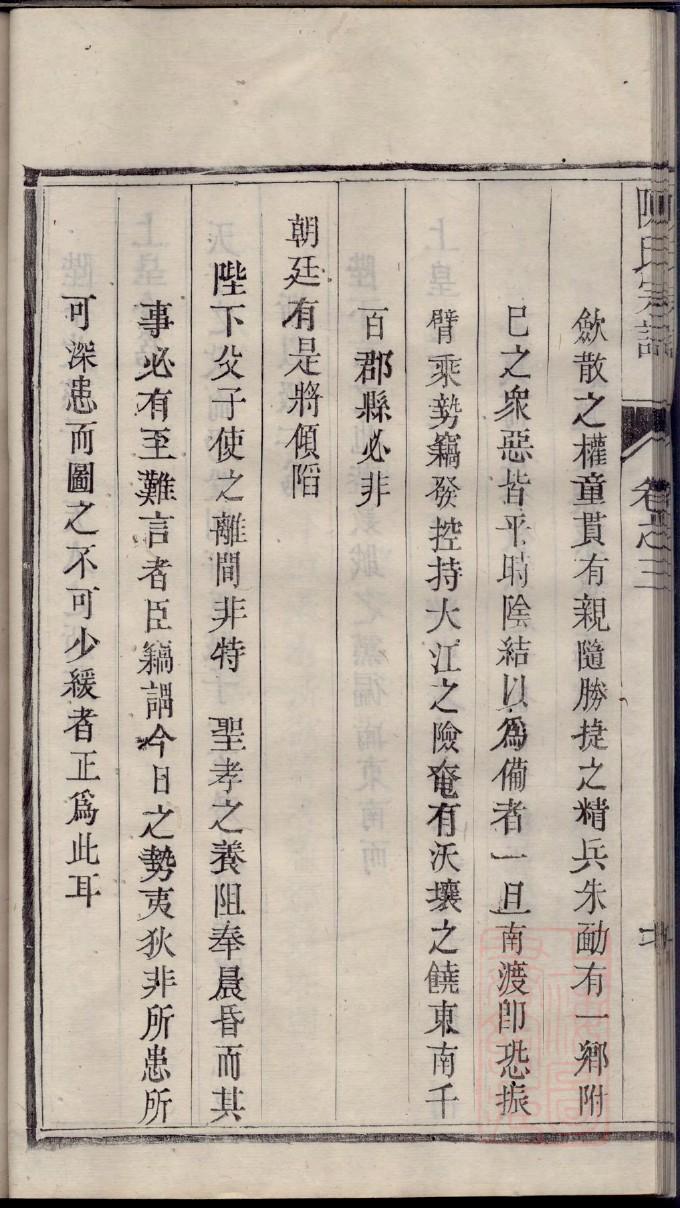 陳氏宗譜 卷之三
歛散之權童貫有親隨勝捷之精兵朱勔有一鄉附
已之衆惡皆平時陰結以爲備者一旦南渡卽恐振
臂乘勢竊發控持大江之險奄有沃壤之饒東南千
百郡縣必非
朝廷有是將傾陷
陛下父子使之離間非特 聖孝之養阻奉晨昏而其
事必有至難言者臣竊謂今日之勢夷狄非所患所
可深患而圖之不可少緩者正爲此耳